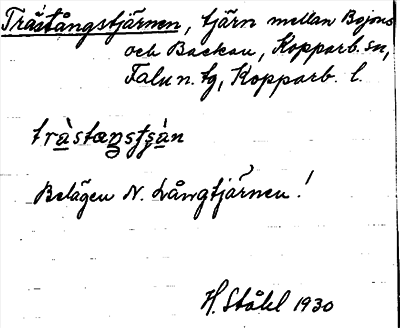 Tråstångstjärnen, tjärn mellan Bojons
och Backau, Kopparb. sn,
Falu n. tg, Kopparb. l.
Belägen N. Långtjärnen!
H. Ståhl 1930